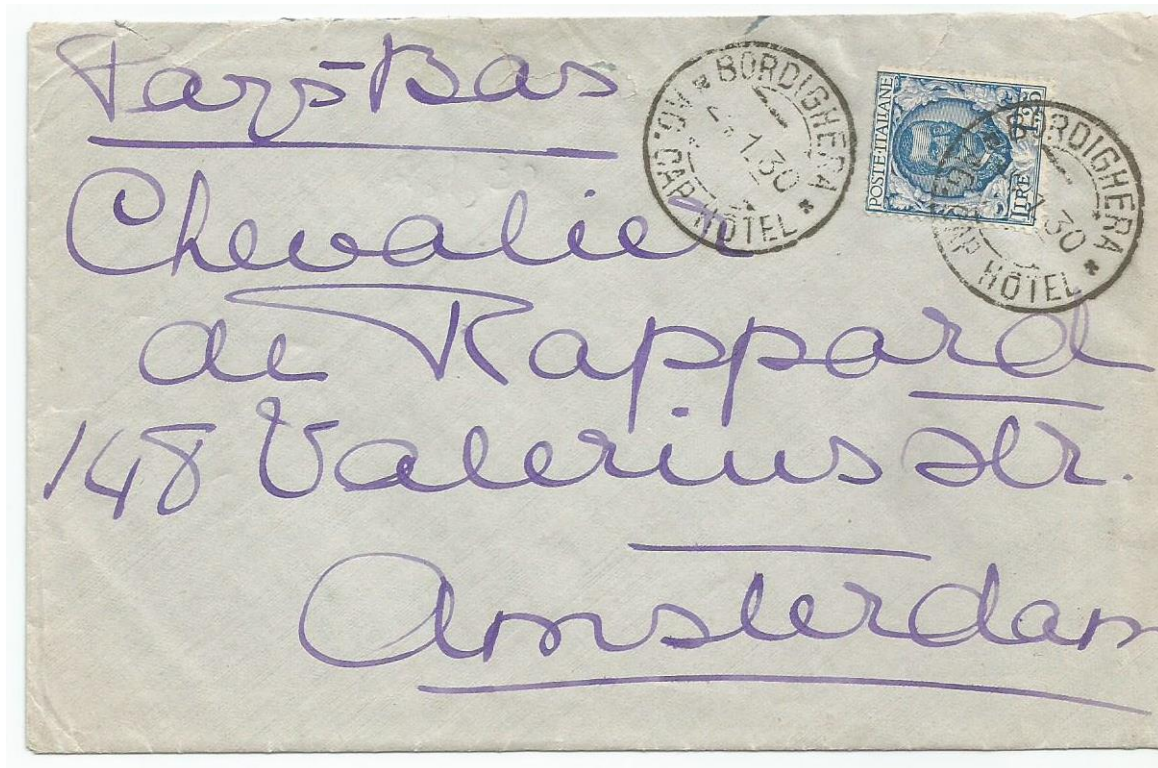 Pays-Bas
Chevalier
de Rappard
148 Valeriusstr.
Amsterdam
BORDIGHERA
AG. CAP HÔTEL
1.30
POSTE·ITALIANE
LIRE 1,25
BORDIGHERA
CAP HÔTEL
1.30